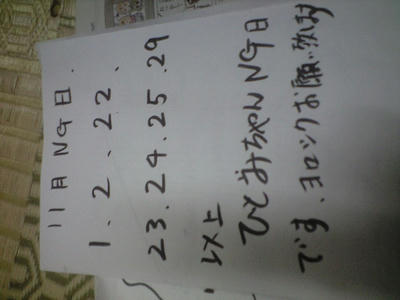 11月NG日.
1.2.22.
23.24.25.29
以上
ひとみちゃんNG日
です、ヨロックお願い致します